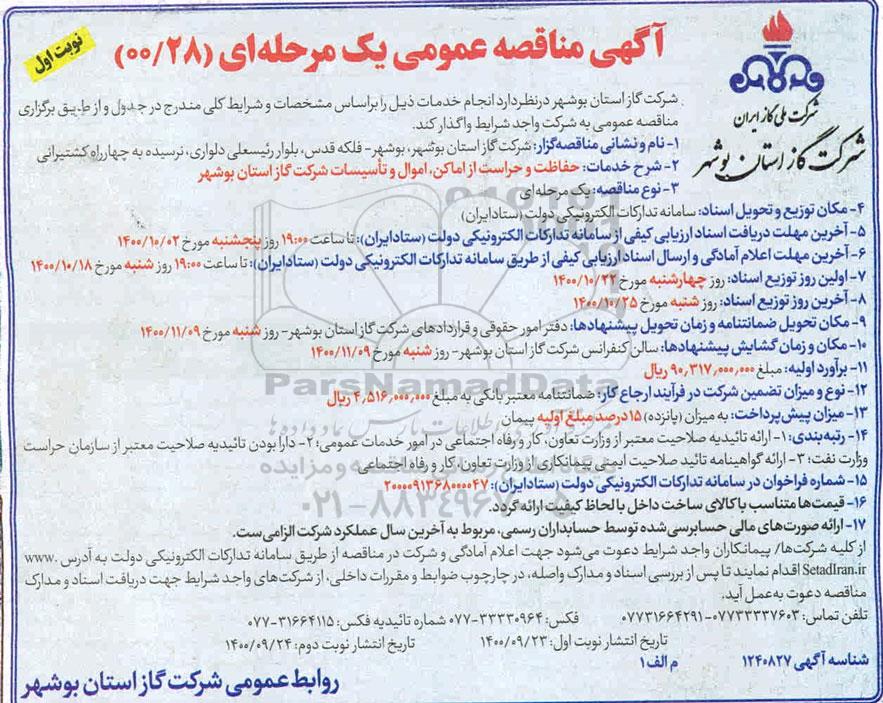 آگهی مناقصه عمومی یک مرحله‌ای (۰۰/۲۸)
نوبت اول
شرکت ملی گاز ایران
شرکت گاز استان بوشهر
شرکت گاز استان بوشهر درنظر دارد انجام خدمات ذیل را براساس مشخصات و شرایط کلی مندرج در جدول و از طریق برگزاری
مناقصه عمومی به شرکت واجد شرایط واگذار کند.
۱- نام و نشانی مناقصه‌گزار: شرکت گاز استان بوشهر، بوشهر- فلکه قدس، بلوار رئیسعلی دلواری، نرسیده به چهارراه کشتیرانی
۲- شرح خدمات: حفاظت و حراست از اماکن، اموال و تأسیسات شرکت گاز استان بوشهر
۳- نوع مناقصه: یک مرحله‌ای
۴- مکان توزیع و تحویل اسناد: سامانه تدارکات الکترونیکی دولت (ستاد ایران)
۵- آخرین مهلت دریافت اسناد ارزیابی کیفی از سامانه تدارکات الکترونیکی دولت (ستاد ایران): تا ساعت ۱۹:۰۰ روز پنجشنبه مورخ ۱۴۰۰/۱۰/۰۲
۶- آخرین مهلت اعلام آمادگی و ارسال اسناد ارزیابی کیفی از طریق سامانه تدارکات الکترونیکی دولت (ستاد ایران): تا ساعت ۱۹:۰۰ روز شنبه مورخ ۱۴۰۰/۱۰/۱۸
۷- اولین روز توزیع اسناد: روز چهارشنبه مورخ ۱۴۰۰/۱۰/۲۲
۸- آخرین روز توزیع اسناد: روز شنبه مورخ ۱۴۰۰/۱۰/۲۵
۹- مکان تحویل ضمانتنامه و زمان تحویل پیشنهادها: دفتر امور حقوقی و قراردادهای شرکت گاز استان بوشهر- روز شنبه مورخ ۱۴۰۰/۱۱/۰۹
۱۰- مکان و زمان گشایش پیشنهادها: سالن کنفرانس شرکت گاز استان بوشهر- روز شنبه مورخ ۱۴۰۰/۱۱/۰۹
۱۱- برآورد اولیه: مبلغ ۹۰٫۳۱۷٫۰۰۰٫۰۰۰ ریال
۱۲- نوع و میزان تضمین شرکت در فرآیند ارجاع کار: ضمانتنامه معتبر بانکی به مبلغ ۴٫۵۱۶٫۰۰۰٫۰۰۰ ریال
۱۳- میزان پیش‌پرداخت: به میزان (پانزده) ۱۵ درصد مبلغ اولیه پیمان
۱۴- رتبه‌بندی: ۱- ارائه تائیدیه صلاحیت معتبر از وزارت تعاون، کار و رفاه اجتماعی در امور خدمات عمومی؛ ۲- دارا بودن تائیدیه صلاحیت معتبر از سازمان حراست
وزارت نفت؛ ۳- ارائه گواهینامه تائید صلاحیت ایمنی پیمانکاری از وزارت تعاون، کار و رفاه اجتماعی
۱۵- شماره فراخوان در سامانه تدارکات الکترونیکی دولت (ستاد ایران): ۲۰۰۰۰۹۱۳۶۸۰۰۰۰۴۷
۱۶- قیمت‌ها متناسب با کالای ساخت داخل با لحاظ کیفیت ارائه گردد.
۱۷- ارائه صورت‌های مالی حسابرسی شده توسط حسابداران رسمی، مربوط به آخرین سال عملکرد شرکت الزامی ست.
از کلیه شرکت‌ها/ پیمانکاران واجد شرایط دعوت می‌شود جهت اعلام آمادگی و شرکت در مناقصه از طریق سامانه تدارکات الکترونیکی دولت به آدرس www.
SetadIran.ir اقدام نمایند تا پس از بررسی اسناد و مدارک واصله، در چارچوب ضوابط و مقررات داخلی، از شرکت‌های واجد شرایط جهت دریافت اسناد و مدارک
مناقصه دعوت به‌عمل آید.
تلفن تماس: ۰۷۷۳۳۳۳۷۶۰۳-۰۷۷۳۱۶۶۴۲۹۱ فکس: ۳۳۳۳۰۹۶۴-۰۷۷ شماره تائیدیه فکس: ۳۱۶۶۴۱۱۵-۰۷۷
تاریخ انتشار نوبت اول: ۱۴۰۰/۰۹/۲۳ تاریخ انتشار نوبت دوم: ۱۴۰۰/۰۹/۲۴
شناسه آگهی ۱۲۴۰۸۲۷ م الف ۱
روابط عمومی شرکت گاز استان بوشهر
ParsNamadData
۰۲۱-۸۸۳۴۹۶۷۰-۵